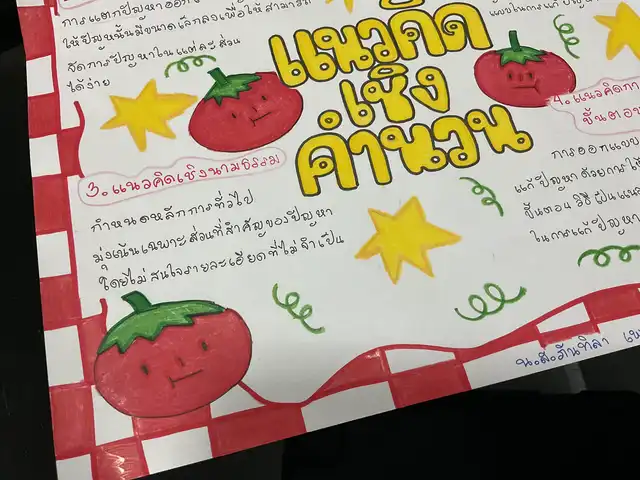 การแตกปัญหาออก
ให้ปัญหานั้นมีขนาดเล็กลงเพื่อให้สามารถ
จัดการปัญหาในแต่ละส่วน
ได้ง่าย
แนวคิด
เชิง
คำนวน
3. แนวคิดเชิงนามธรรม
กำหนดหลักการทั่วไป
มุ่งเน้นเฉพาะส่วนที่สำคัญของปัญหา
โดยไม่สนใจรายละเอียดที่ไม่จำเป็น
4. แนวคิดการ
ขั้นตอน
การออกแบบ
แก้ปัญหาด้วยการใช้
ขั้นตอน วิธี เป็นแนว
ในการแก้ปัญหา
น.ส.ภันทิลา